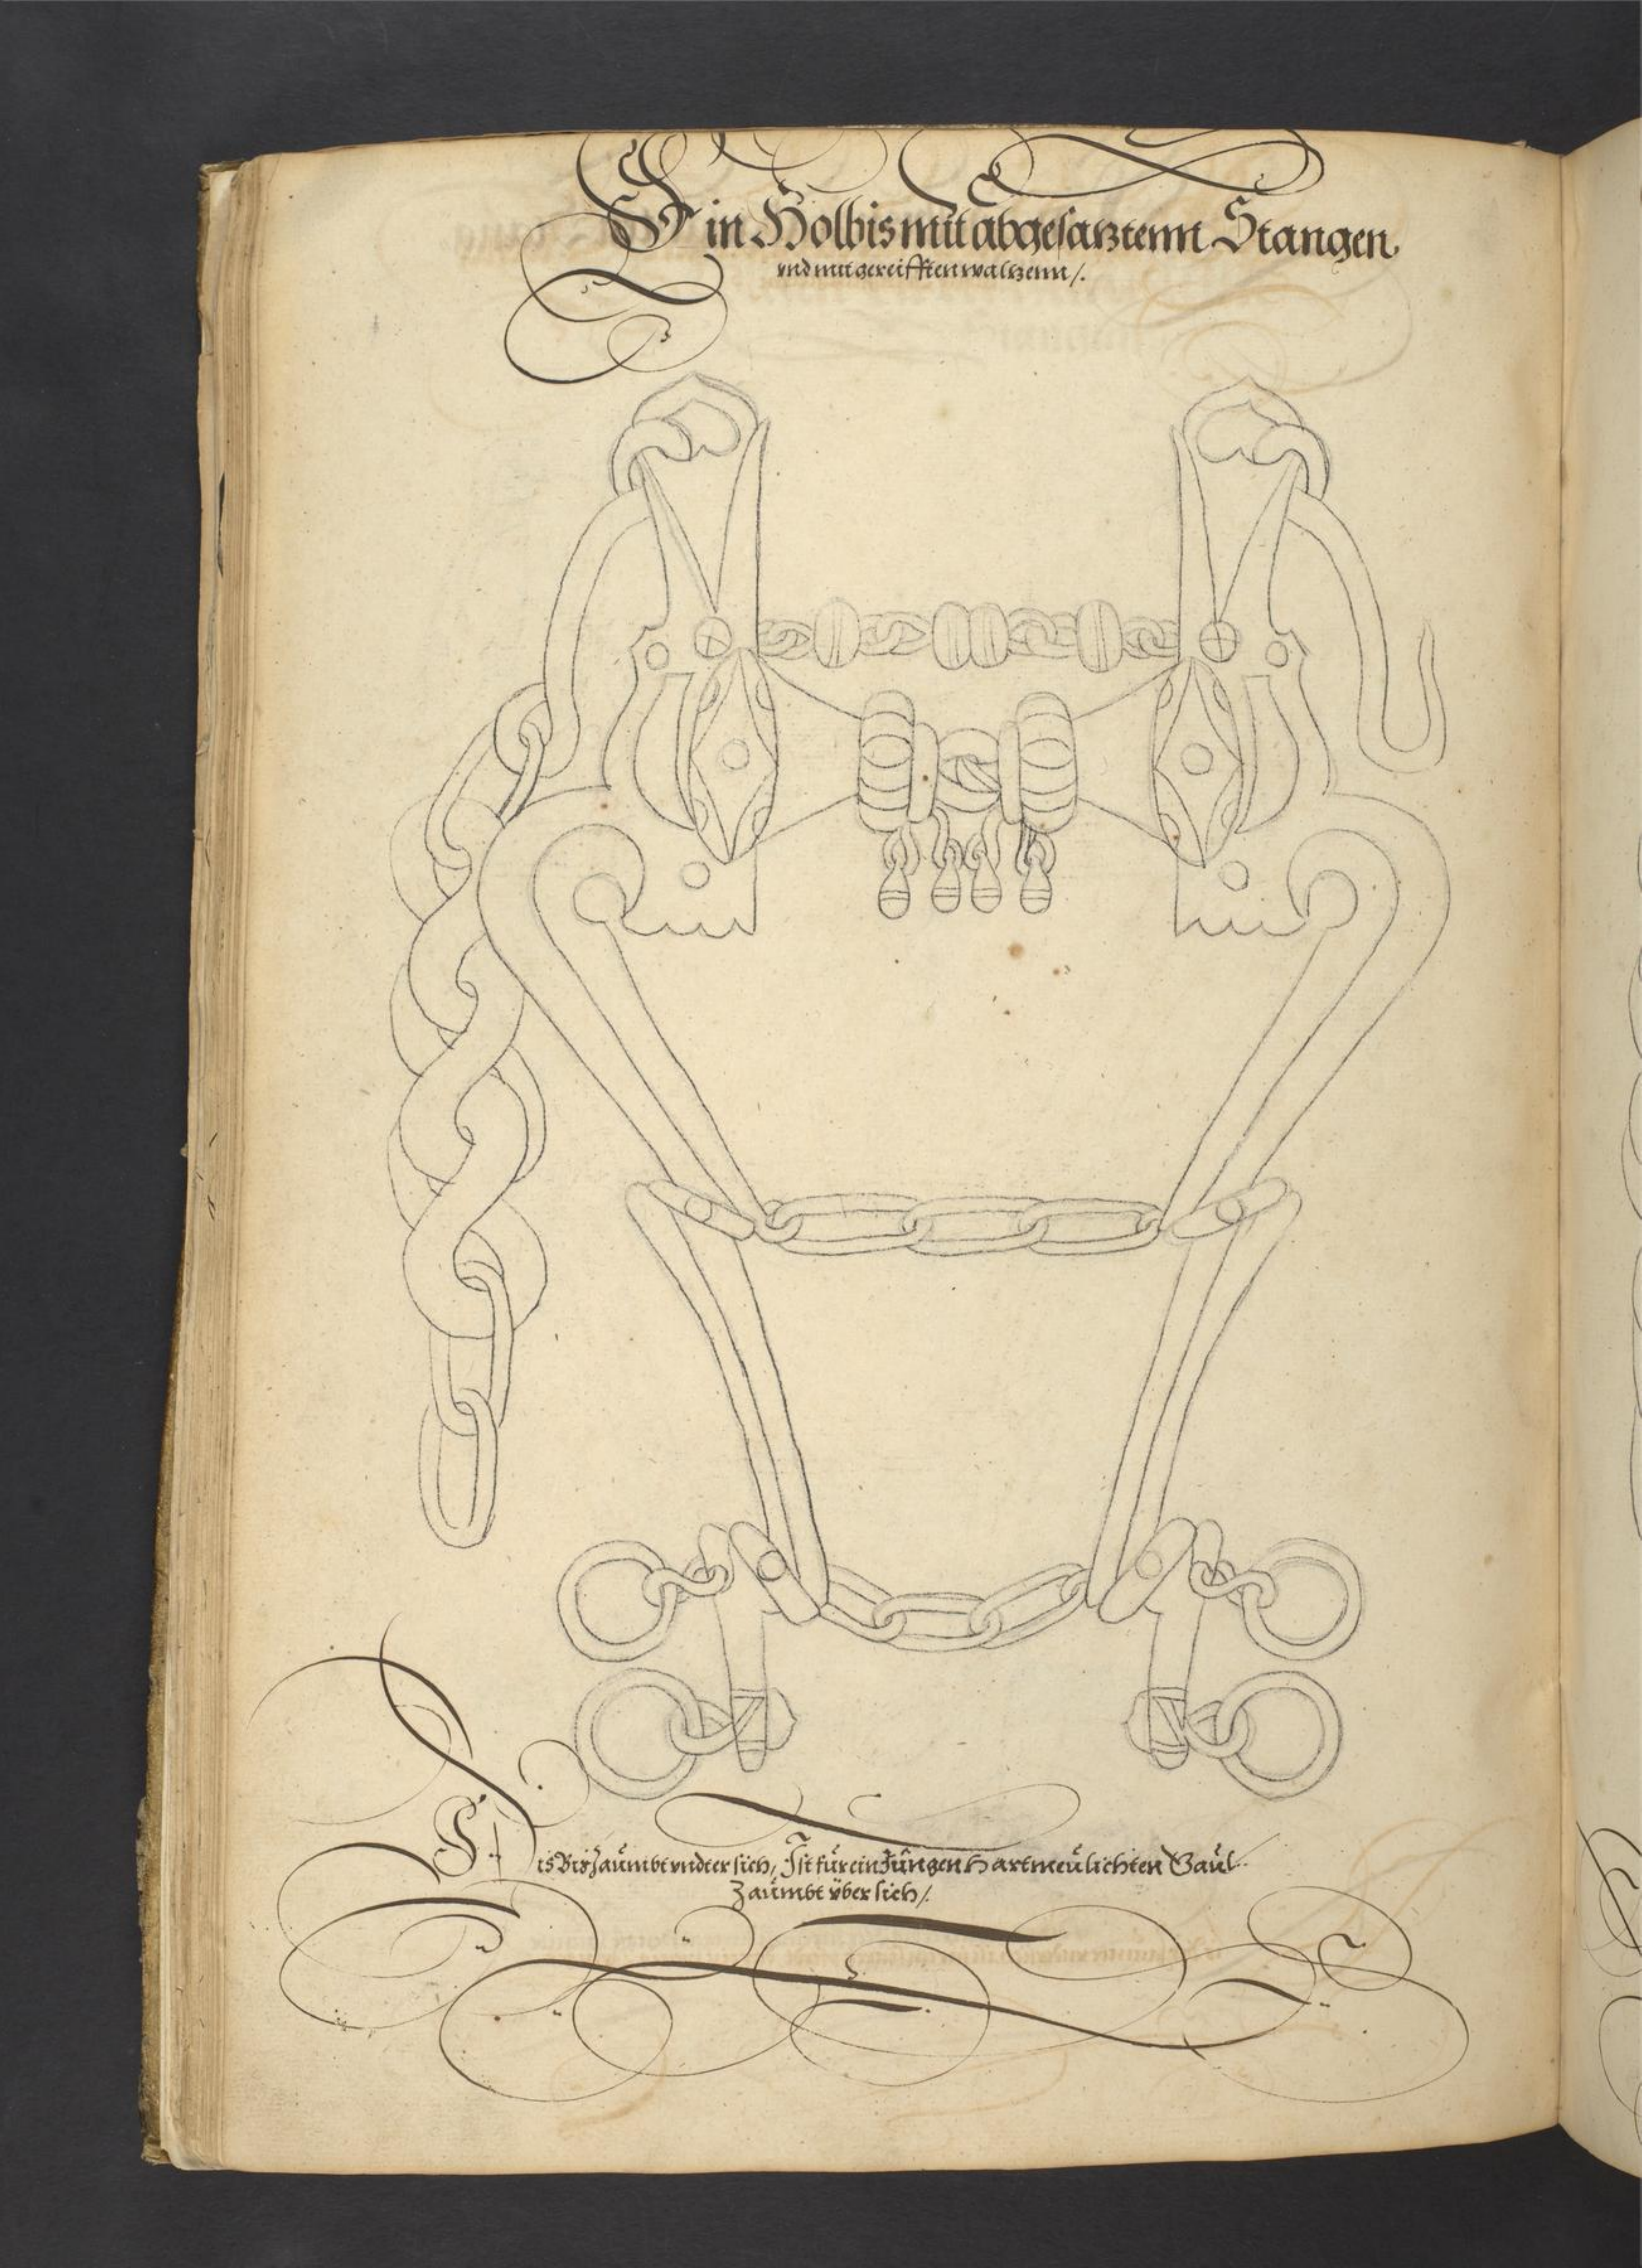 Ein Holbis mit abgesatztemt Stangen.
vnd mit gereifften waltzenn /.
Dis Bis Zaümbt vndter sich, Ist für ein Jüngen Hartmeülichten Gaül.
Zaümbt über sich /.